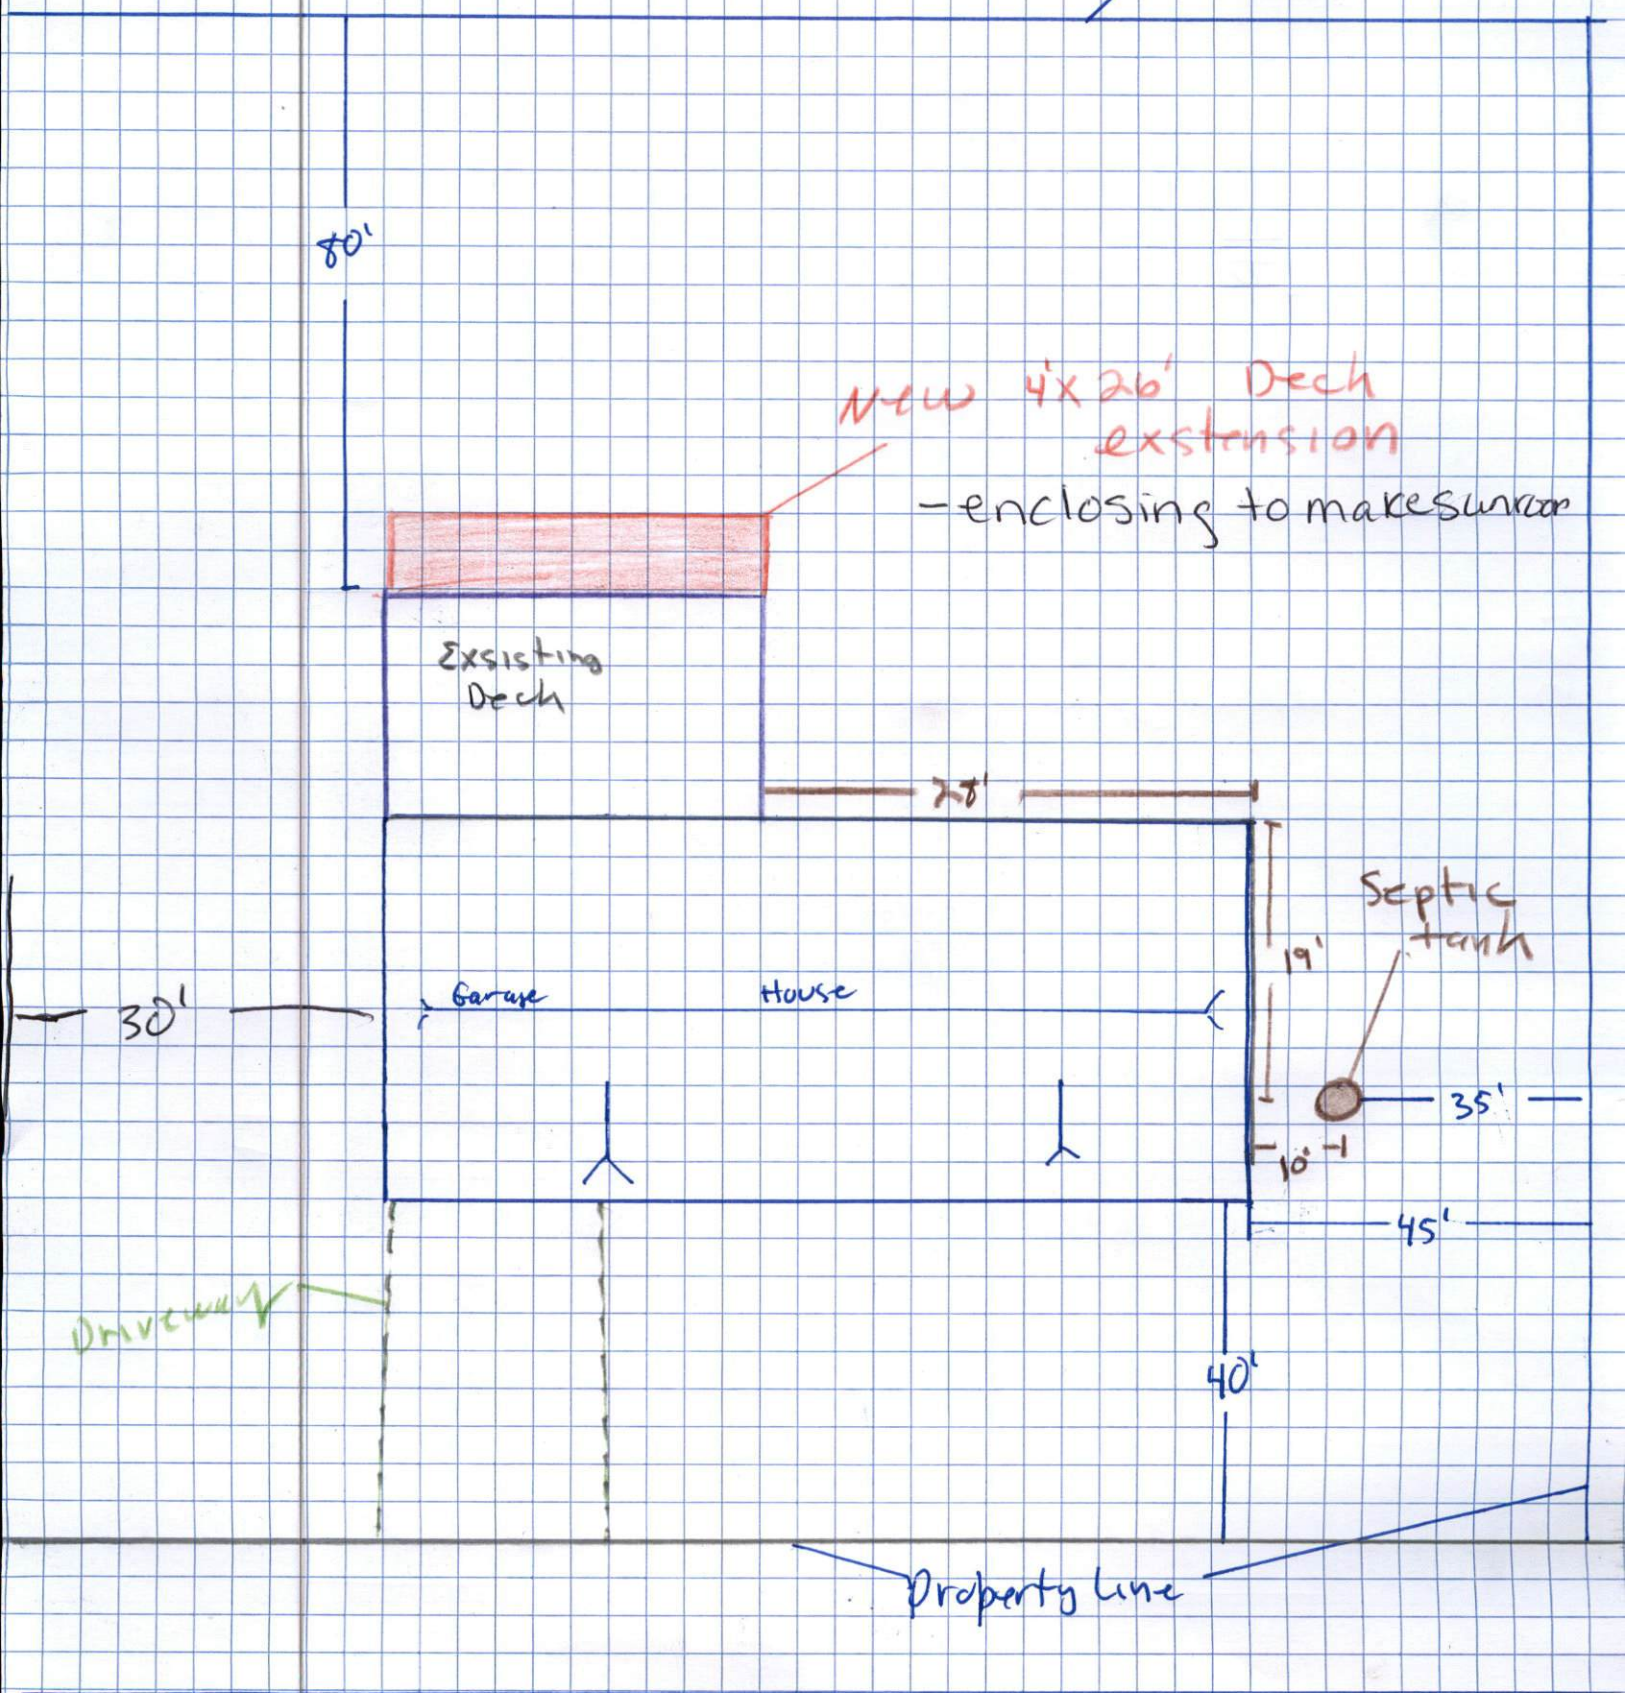 80'
New 4'x26' Dech
exstension
-enclosing to make sunroom
Exsisting
Dech
28'
Septic
tank
19'
Garage House
30'
35'
10'
45'
Driveway
40'
Property Line